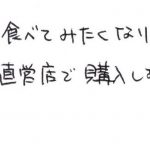 食べてみたくなり
直営店で購入し